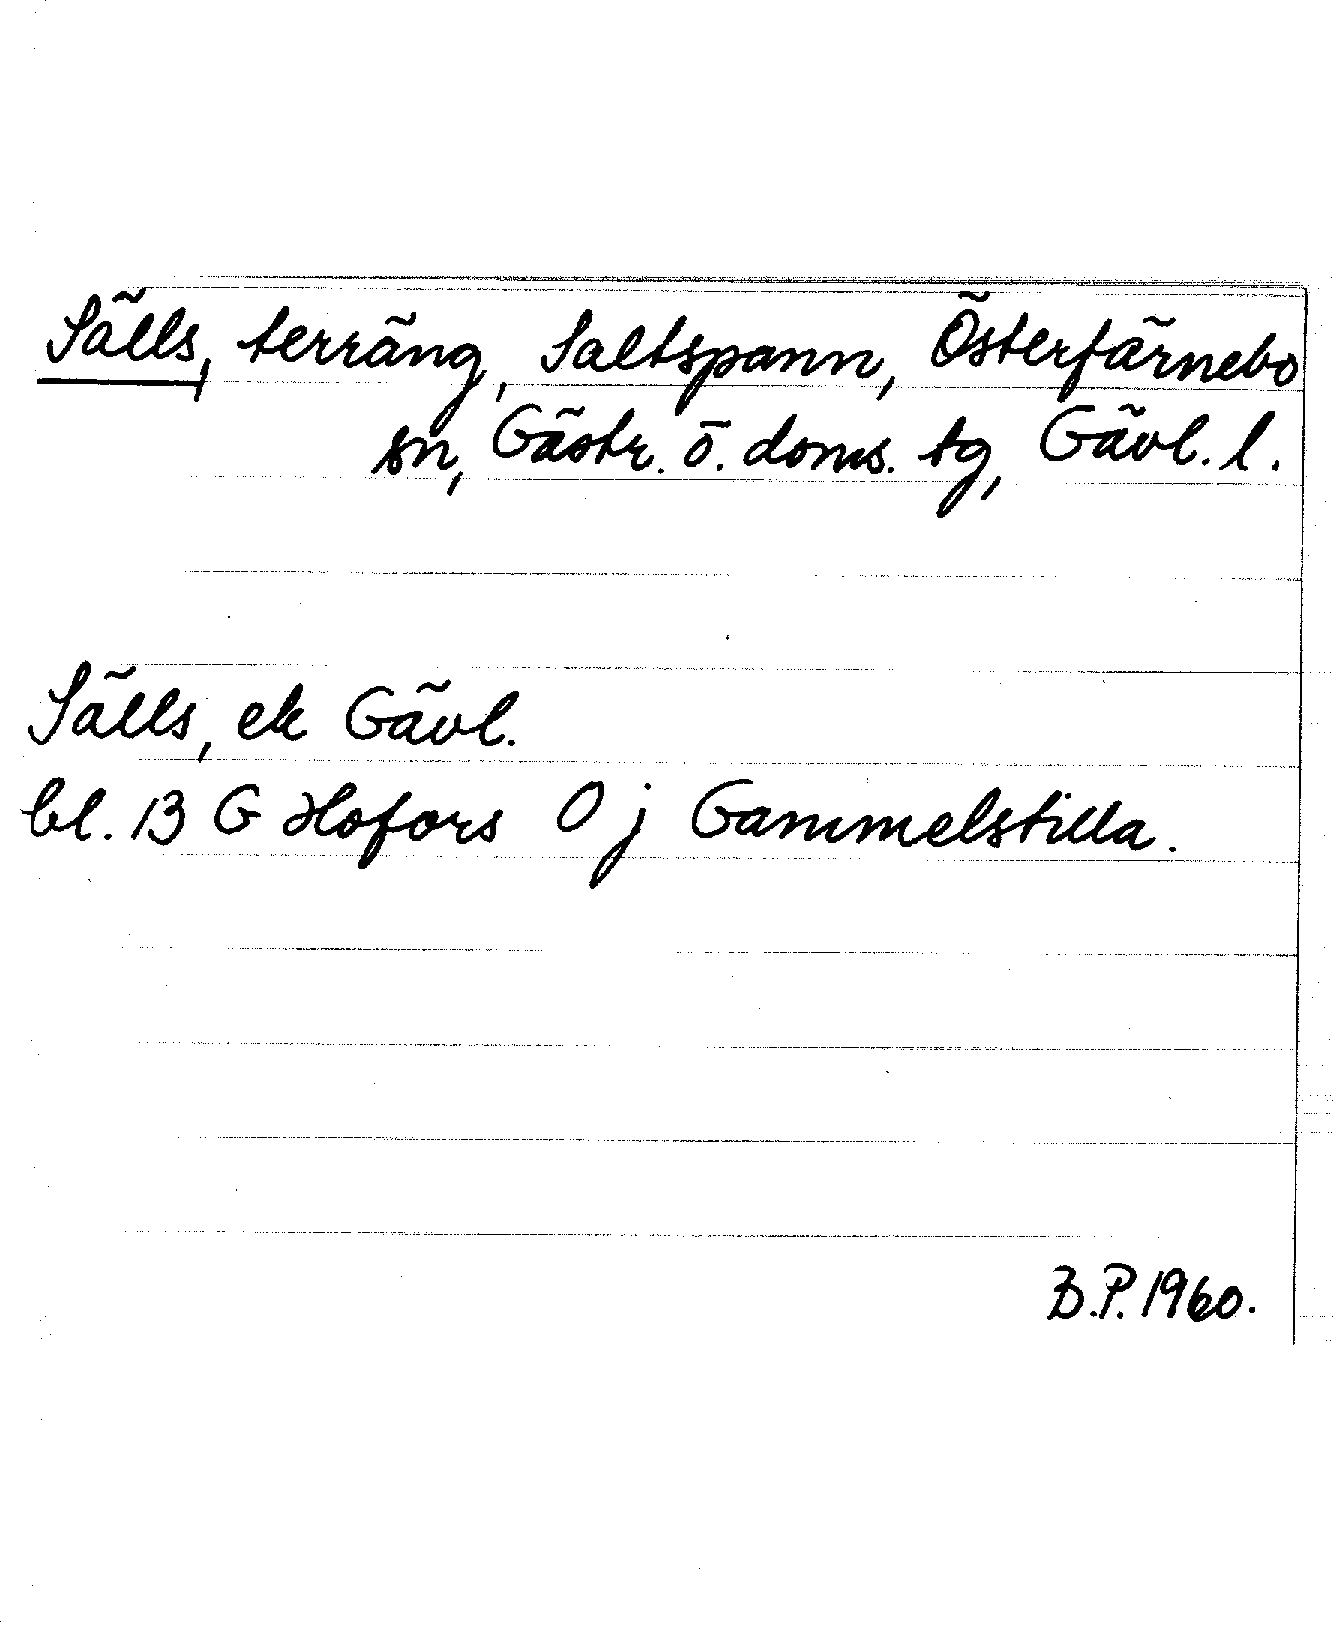 Sälls, terräng, Saltspann, Österfärnebo
sn, Gästr. ö. doms. tg, Gävl. l.
Sälls, ek Gävl.
bl. 13 G Hofors 0 j Gammelstilla.
B.P. 1960.